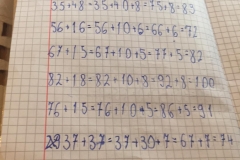 35+48=35+40+8=75+8=83
56+16=56+10+6=66+6=72
67+15=67+10+5=77+5=82
82+18=82+10+8=92+8=100
76+15=76+10+5=86+5=91
37+37=37+30+7=67+7=74